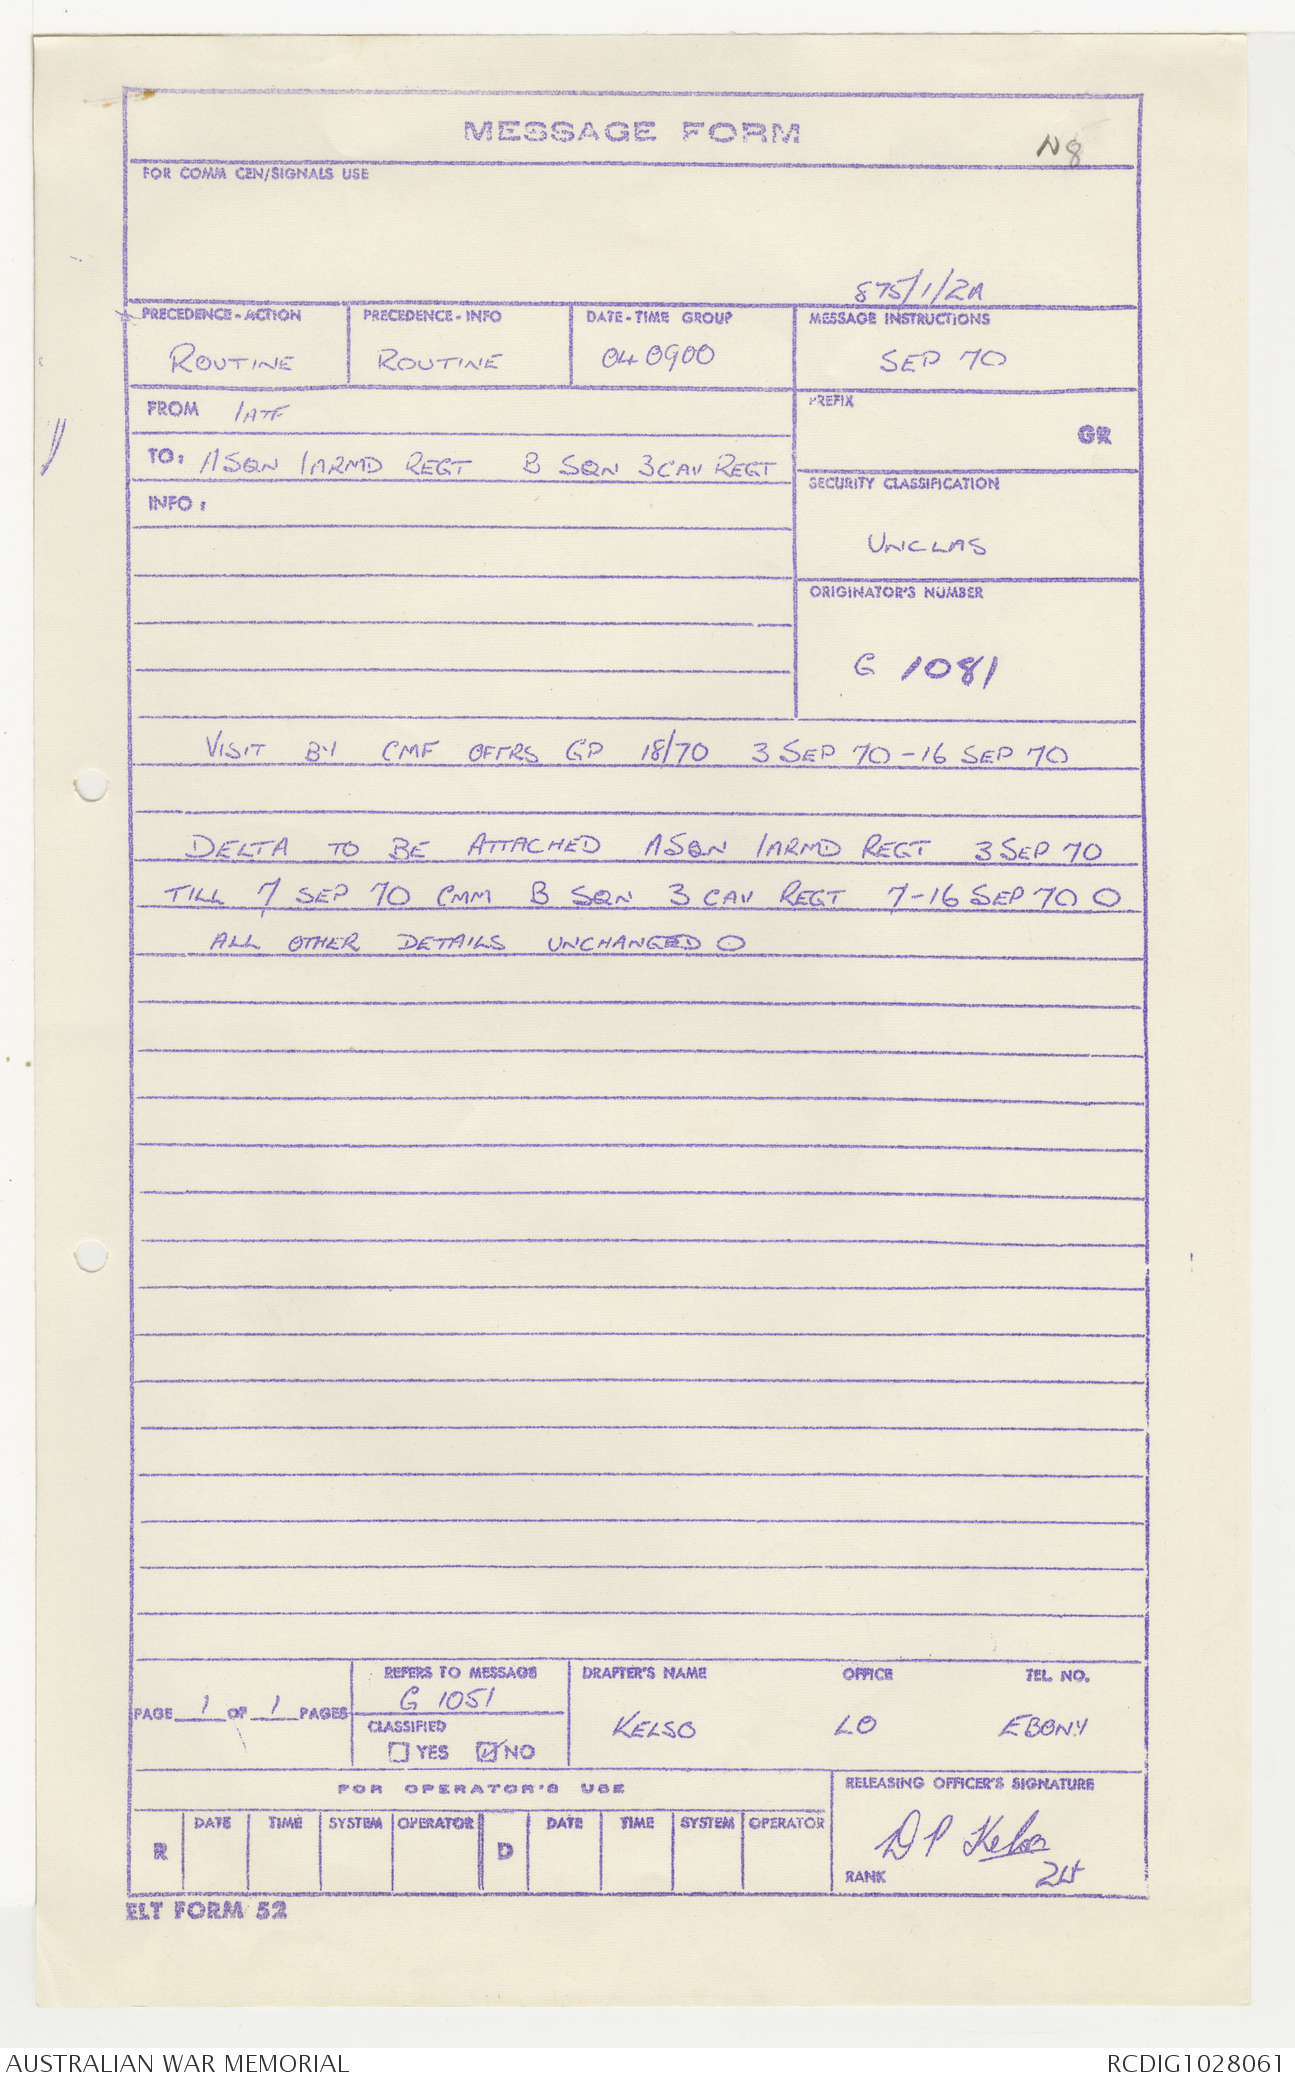 MESSAGE FORM
N8
FOR COMM CEN/SIGNALS USE
875/1/2A
PRECEDENCE-ACTION PRECEDENCE-INFO DATE-TIME GROUP MESSAGE INSTRUCTIONS
ROUTINE ROUTINE 040900 SEP 70
FROM 1ATF
PREFIX
GR
TO: A SQN 1 ARMD REGT B SQN 3 CAV REGT
SECURITY CLASSIFICATION
INFO:
UNCLAS
ORIGINATOR'S NUMBER
G 1081
VISIT BY CMF OFFRS GP 18/70 3 SEP 70-16 SEP 70
DELTA TO BE ATTACHED A SQN 1 ARMD REGT 3 SEP 70
TILL 7 SEP 70 CMM B SQN 3 CAV REGT 7-16 SEP 70 O
ALL OTHER DETAILS UNCHANGED O
REFERS TO MESSAGE DRAFTER'S NAME OFFICE TEL. NO.
G 1051
PAGE 1 OF 1 PAGES
CLASSIFIED
KELSO LO EBONY
YES NO
FOR OPERATOR'S USE
RELEASING OFFICER'S SIGNATURE
R DATE TIME SYSTEM OPERATOR D DATE TIME SYSTEM OPERATOR
D P Kelso
RANK 2Lt
ELT FORM 52
AUSTRALIAN WAR MEMORIAL RCDIG1028061